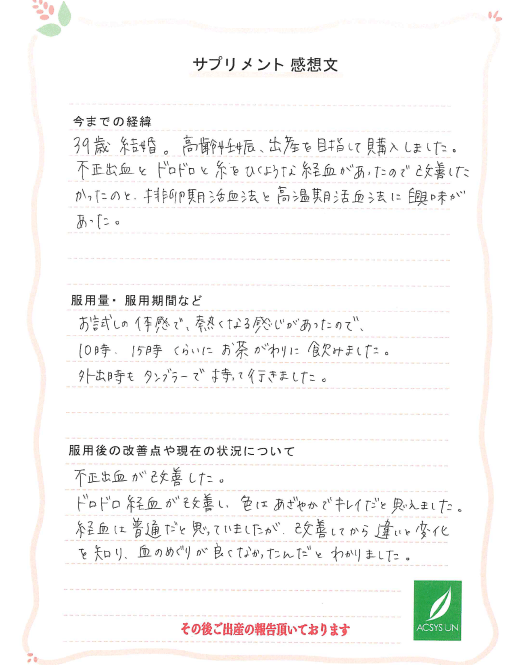 サプリメント 感想文
今までの経緯
39歳 結婚。高齢妊娠、出産を目指して購入しました。
不正出血と ドロドロと糸をひくような 経血があったので改善した
かったのと、排卵期活血法と高温期活血法に興味が
あった。
服用量・服用期間など
お試しの体感で、熱くなる感じがあったので、
10時、15時くらいに お茶がわりに 飲みました。
外出時も タンブラーで 持って行きました。
服用後の改善点や現在の状況について
不正出血が改善した。
ドロドロ経血が改善し、色はあざやかでキレイだと思えました。
経血は普通だと思っていましたが、改善してから違いと変化
を知り、血のめぐりが良くなかったんだと わかりました。
その後ご出産の報告頂いております
ACSYS UN